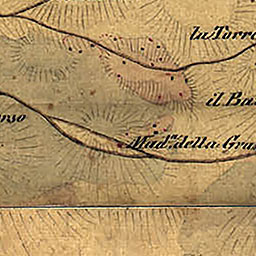 la Torre
il Ba
rso
Mad.ª della Gra